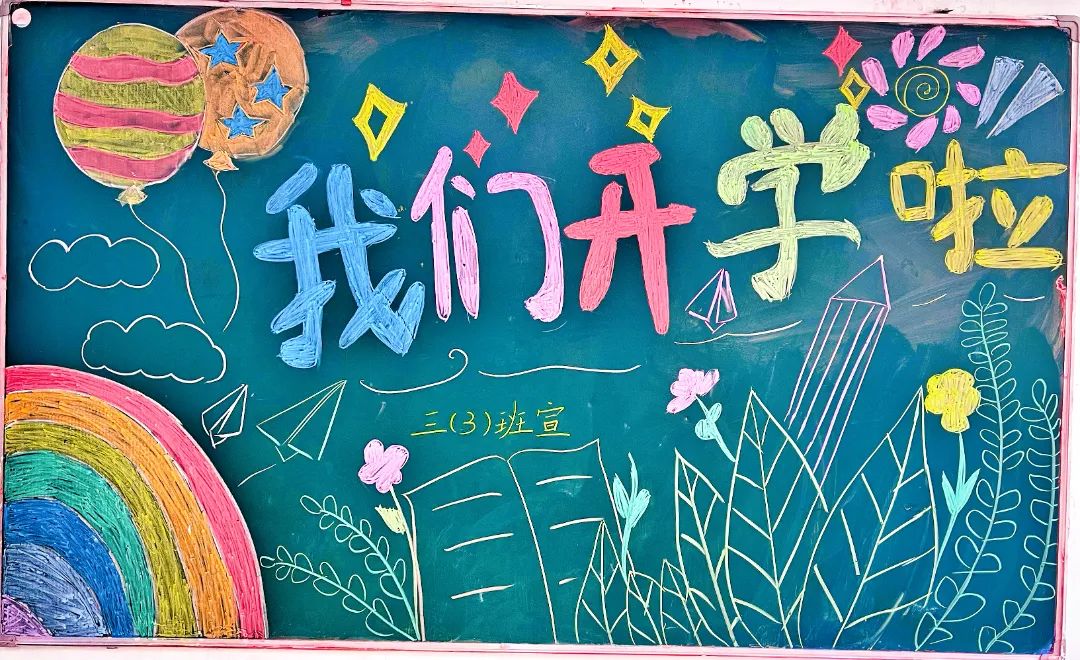 我们开学啦
三(3)班宣